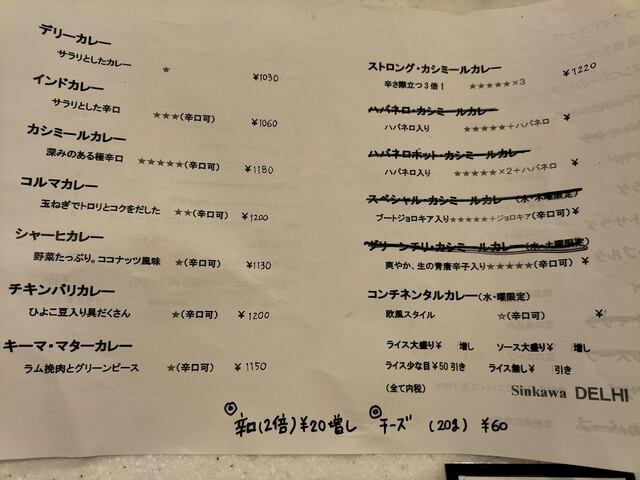 デリーカレー
サラリとしたカレー ★ ¥1030
インドカレー
サラリとした辛口 ★★★(辛口可) ¥1060
カシミールカレー
深みのある極辛口 ★★★★★(辛口可) ¥1180
コルマカレー
玉ねぎでトロリとコクをだした ★★(辛口可) ¥1200
シャーヒカレー
野菜たっぷり。ココナッツ風味 ★(辛口可) ¥1130
チキンバリカレー
ひよこ豆入り具だくさん ★(辛口可) ¥1200
キーマ・マターカレー
ラム挽肉とグリーンピース ★(辛口可) ¥1150
ストロング・カシミールカレー
辛さ際立つ3倍! ★★★★★×3 ¥1220
ハバネロ・カシミールカレー
ハバネロ入り ★★★★★+ハバネロ ¥
ハバネロホット・カシミールカレー
ハバネロ入り ★★★★★×2+ハバネロ ¥
スペシャル・カシミールカレー(水・木曜限定)
ブートジョロキア入り★★★★★+ジョロキア(辛口可) ¥
グリーンチリ・カシミールカレー(水・土曜限定)
爽やか、生の青唐辛子入り★★★★★(辛口可) ¥
コンチネンタルカレー(水・曜限定)
欧風スタイル ☆(辛口可) ¥
ライス大盛り¥ 増し ソース大盛り¥ 増し
ライス少な目¥50引き ライス無し¥ 引き
(全て内税)
Sinkawa DELHI
◎辛口(2倍)¥20増し ◎チーズ (20g) ¥60